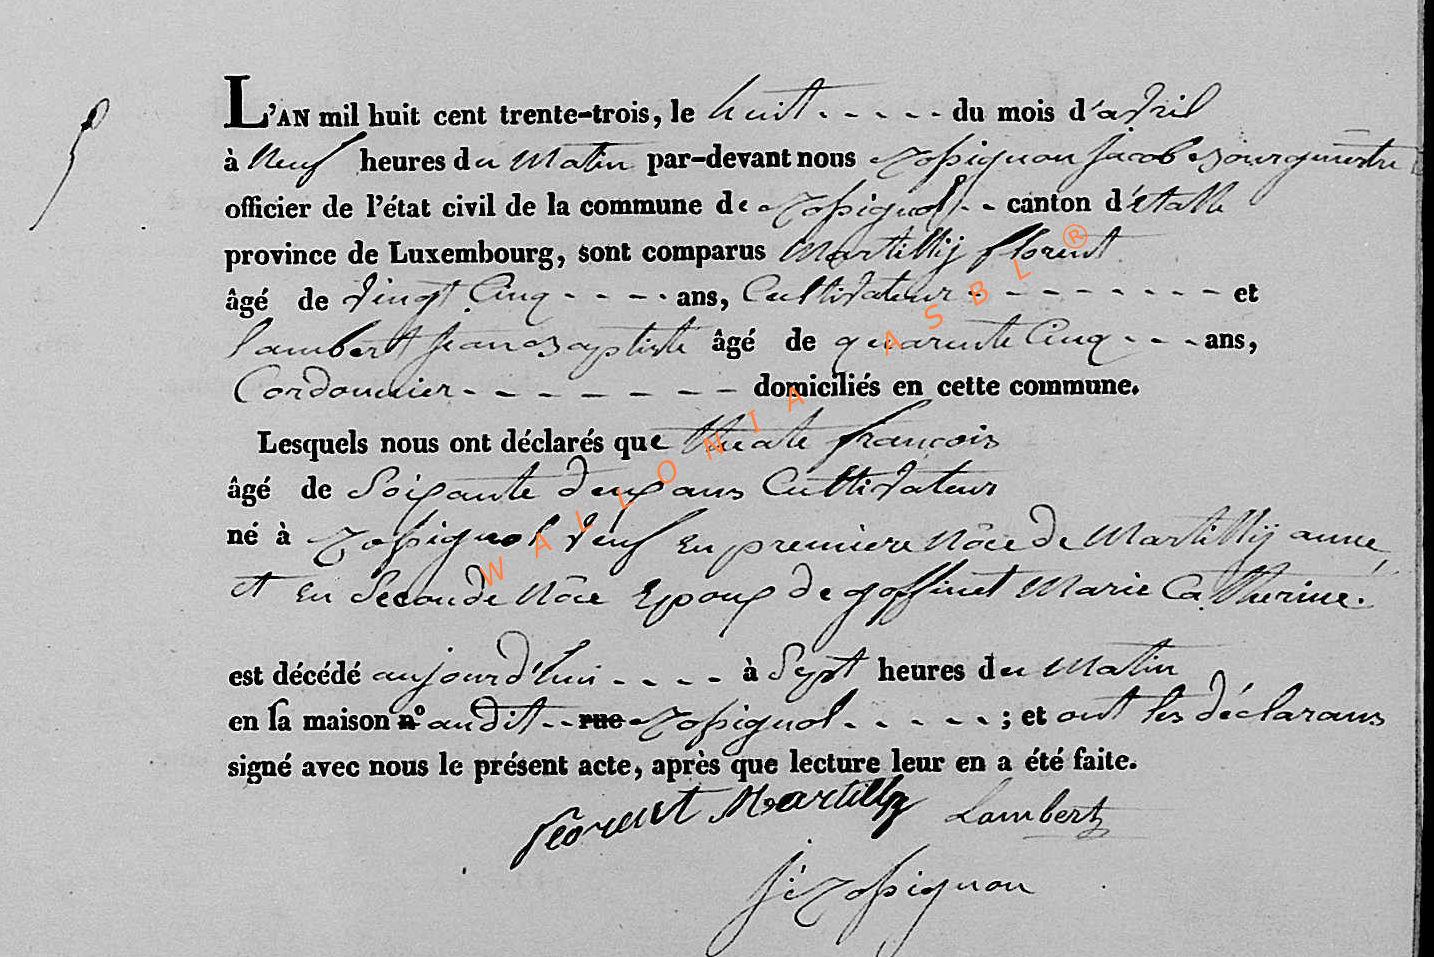 L'AN mil huit cent trente-trois, le huit - - - - - du mois d'avril
à Neuf heures du Matin par-devant nous Rossignon Jacob Bourgmestre
officier de l'état civil de la commune de Rossignol - - canton d'étalle
province de Luxembourg, sont comparus Martilly florent
âgé de vingt Cinq - - - - ans, Cultivateur - - - - - - - - - et
lambert jean Baptiste âgé de quarente Cinq - - - ans,
Cordonnier - - - - - - - domiciliés en cette commune.
Lesquels nous ont déclarés que françois
âgé de Soixante deux ans Cultivateur
né à Rossignol Veuf En premiere Nôce de Martilly anne
et En Seconde Nôce Epoux de goffinet Marie Catherine.
est décédé aujourd'hui - - - - à Sept heures du Matin
en sa maison n° audit - - rue Rossignol - - - - - ; et ont les déclarans
signé avec nous le présent acte, après que lecture leur en a été faite.
florent Martilly Lambert
J. Rossignon
WALLONIA ASBL ®